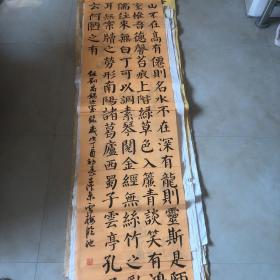 山不在高有僊則名水不在深有龍則靈斯是陋
室惟吾德馨苔痕上階綠草色入簾青談笑有鴻
儒往來無白丁可以調素琴閱金經無絲竹之亂
耳無案牘之勞形南陽諸葛廬西蜀子雲亭孔
云何陋之有
劉禹錫陋室銘 歲次丁酉